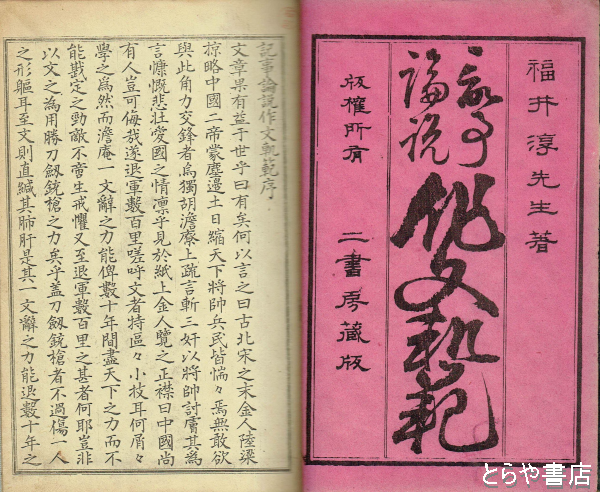 福井淳先生著
記事
論説
作文軌範
版權所有
二書房藏版
記事論說作文軌範序
文章果有益于世乎曰有矣何以言之曰古北宋之末金人陸梁
掠略中國二帝蒙塵邊土日縮天下將帥兵民皆惴々焉無敢欲
與此角力交鋒者爲獨胡澹菴上疏言斬三奸以將帥討虜其爲
言慷慨悲壯愛國之情凛乎見於紙上金人覽之正襟曰中國尚
有人豈可侮哉遂退軍數百里嗟呼文者特區々小技耳何屑々
學之爲然而澹庵一文辭之力能俾數十年間盡天下之力而不
能戡定之勁敵不啻生戒懼又至退軍數百里之甚者何耶豈非
以文之為用勝刀劔銃槍之力兵乎蓋刀劔銃槍者不過傷一人
之形軀耳至文則直縅其肺肝是其一文辭之力能退數十年之
とらや書店